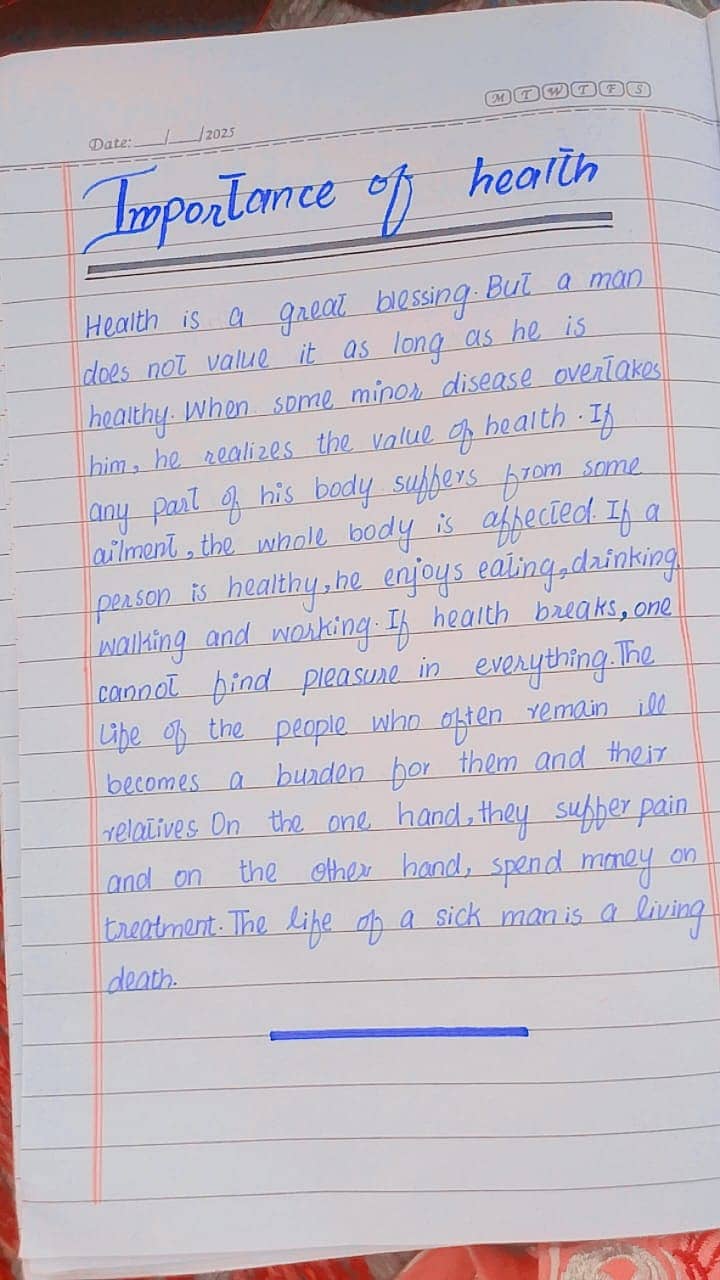 M T W T F S
Date: __/__/2025
Importance of health
Health is a great blessing. But a man
does not value it as long as he is
healthy. When some minor disease overtakes
him, he realizes the value of health. If
any part of his body suffers from some
ailment, the whole body is affected. If a
person is healthy, he enjoys eating, drinking,
walking and working. If health breaks, one
cannot find pleasure in everything. The
life of the people who often remain ill
becomes a burden for them and their
relatives. On the one hand, they suffer pain
and on the other hand, spend money on
treatment. The life of a sick man is a living
death.